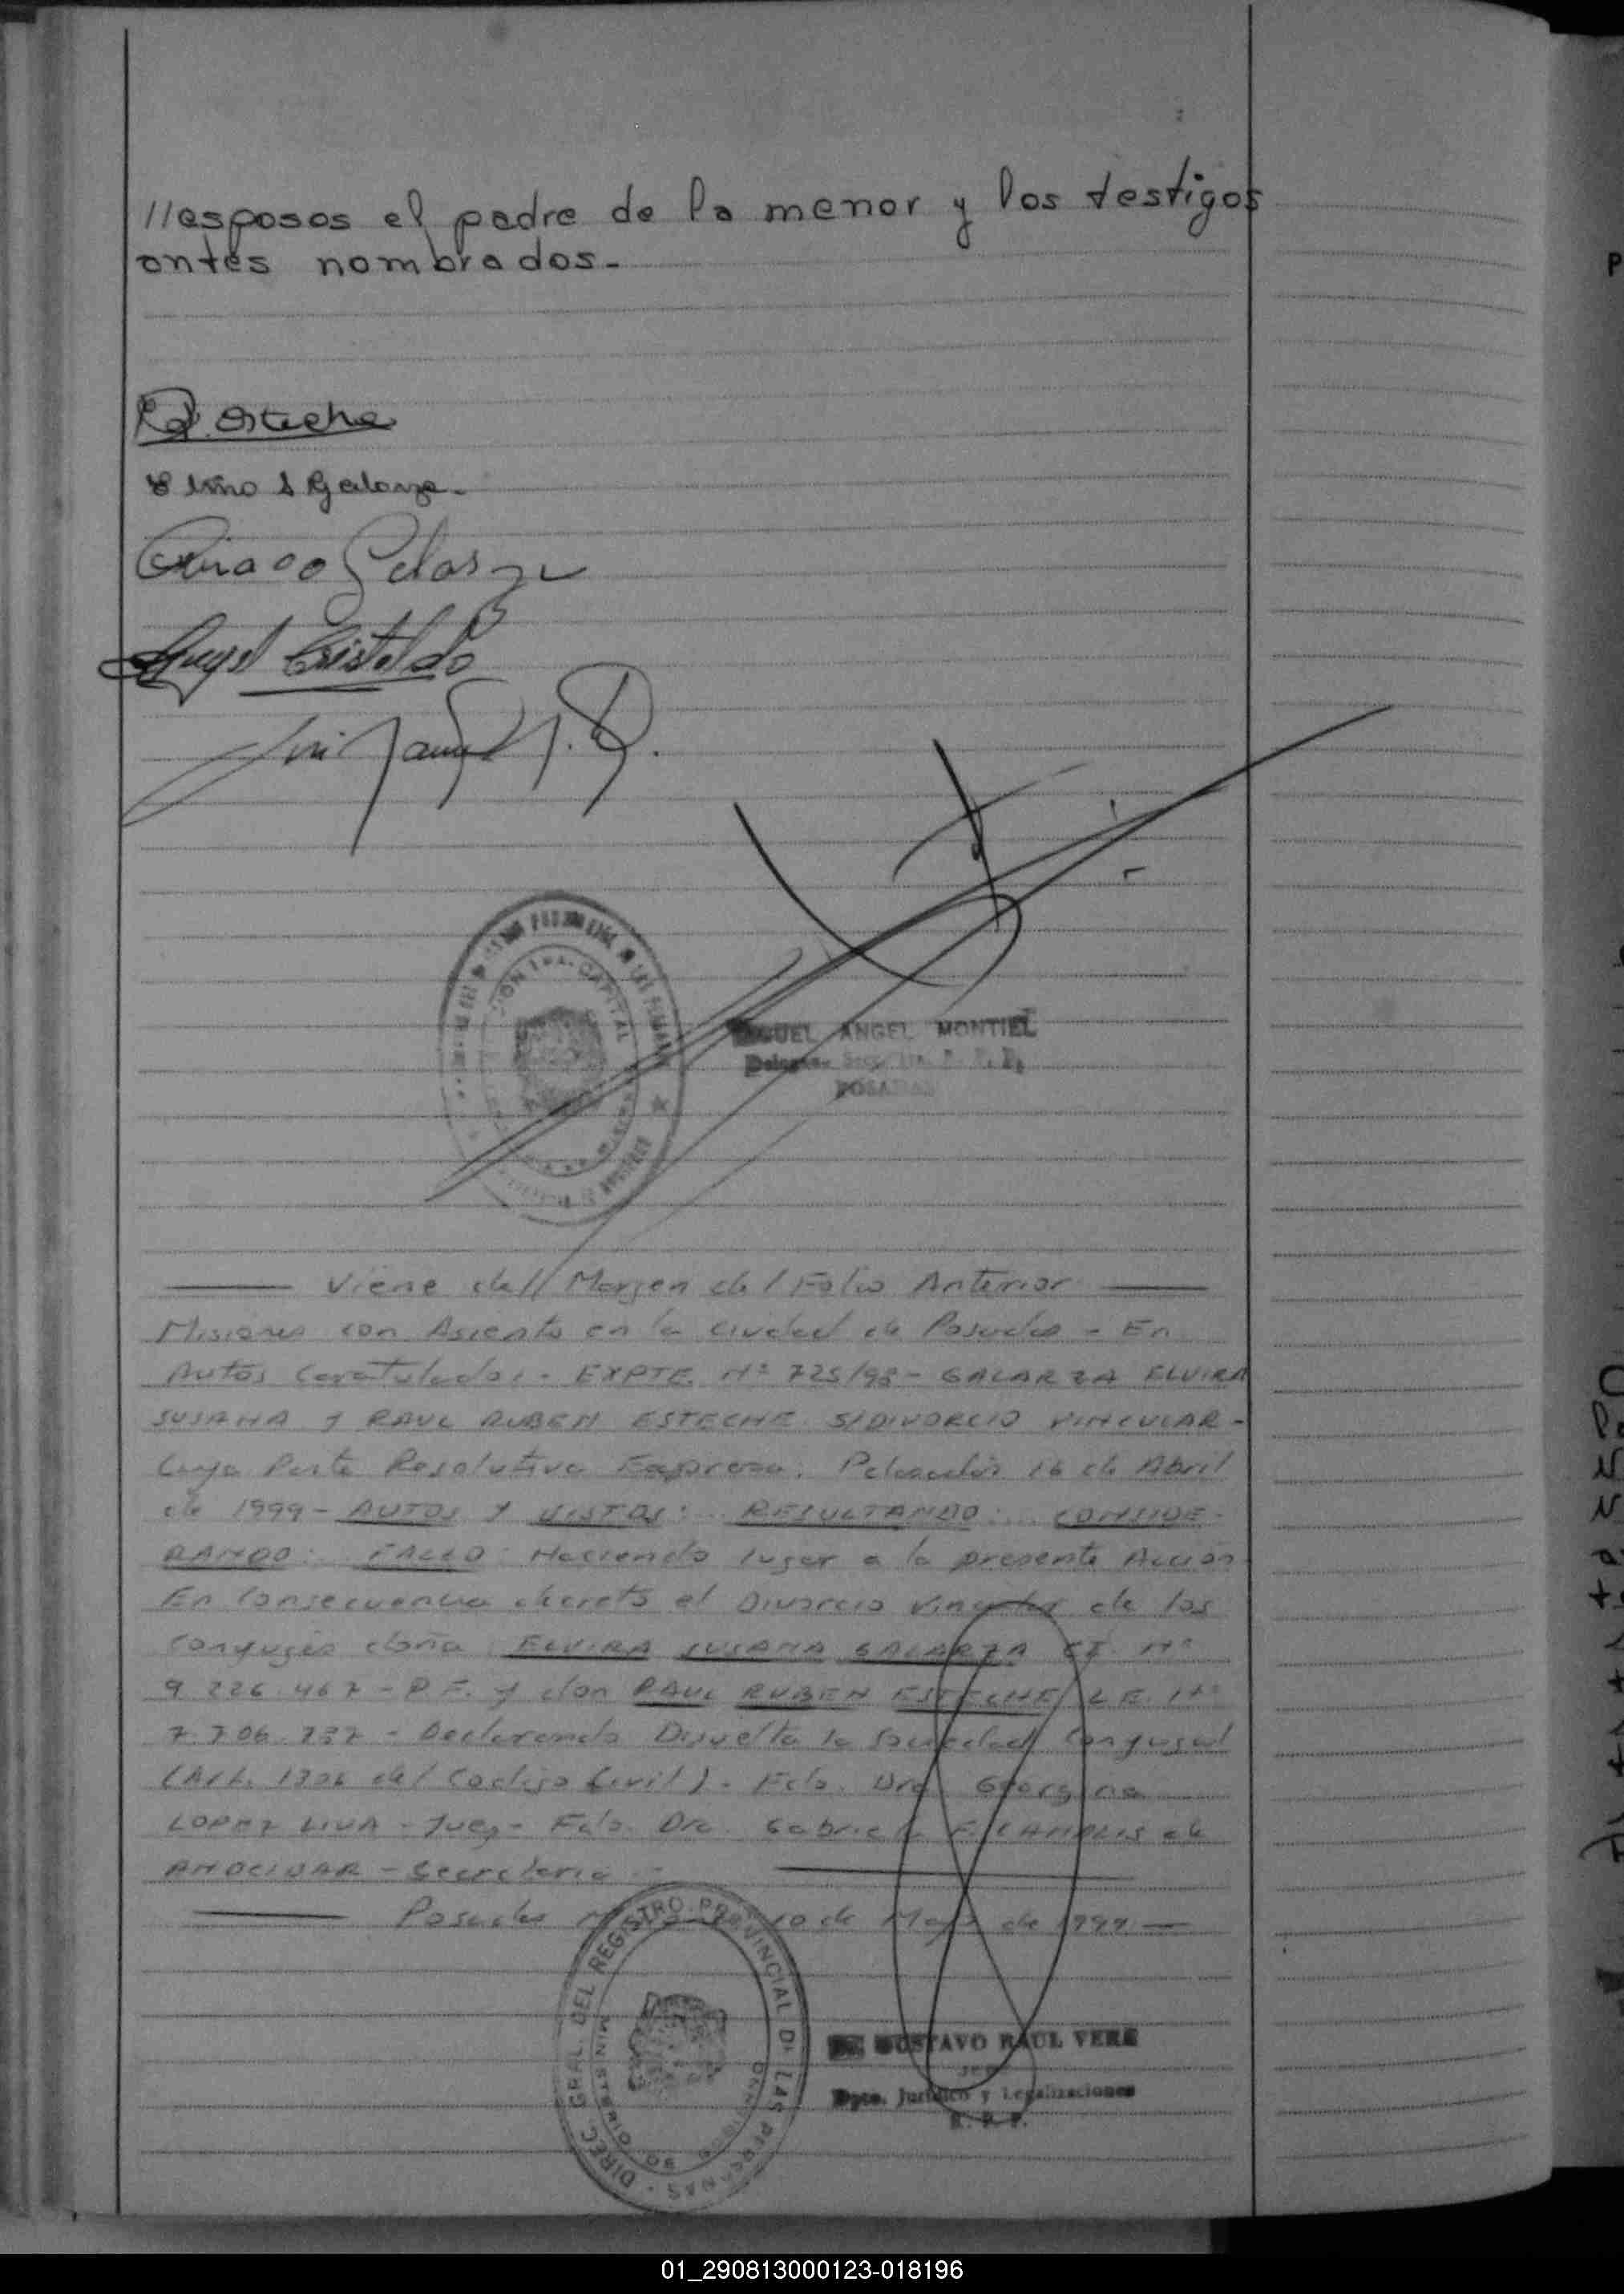 //esposos el padre de la menor y los testigos
antes nombrados.-
R. Esteche
Elvira S Galarza.
Galarza
Angel Cristaldo
MIGUEL ANGEL MONTIEL
POSADAS
CAPITAL
Viene del Margen del Folio Anterior
Misiones con Asiento en la ciudad de Posadas - En
Autos Caratulados - EXPTE. Nº 725/98 - GALARZA ELVIRA
SUSANA Y RAUL RUBEN ESTECHE S/DIVORCIO VINCULAR -
Cuya Parte Resolutiva Expresa: 16 de Abril
de 1999 - AUTOS Y VISTOS: .. RESULTANDO: ... CONSIDE-
RANDO: FALLO: Haciendo lugar a la presente Acción
En consecuencia decreto el Divorcio Vincular de los
conyuges doña ELVIRA SUSANA GALARZA CI. Nº
9.226.467 - P.F. y don RAUL RUBEN ESTECHE L.E. Nº
7.706.237 - Declarando Disuelta la Sociedad Conyugal
(Art. 1306 del Codigo Civil). Fdo. Dra. Georgina
LOPEZ LIVA - Juez - Fdo. Dra. Gabriela F. CANALIS de
AMOCIDAR - Secretaria -
Posadas 10 de Mayo de 1999 -
DIREC. GRAL. DEL REGISTRO PROVINCIAL DE LAS PERSONAS
GUSTAVO RAUL VERE
Jefe
Dpto. Jurídico y Legalizaciones
R. P. P.
01_290813000123-018196